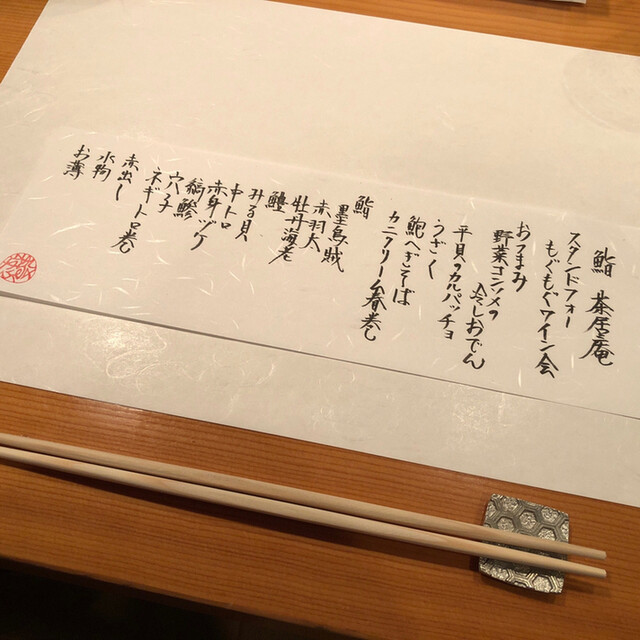 鮨 茶屋庵
スタンドフォー
もぐもぐワイン会
おつまみ
野菜コンソメの
冷しおでん
平貝のカルパッチョ
うざく
鮑へぎそば
カニクリーム春巻
鮨
墨烏賊
赤羽太
牡丹海老
鱧
みる貝
中トロ
赤身ヅケ
縞鯵
穴子
ネギトロ巻
赤出し
水物
お薄